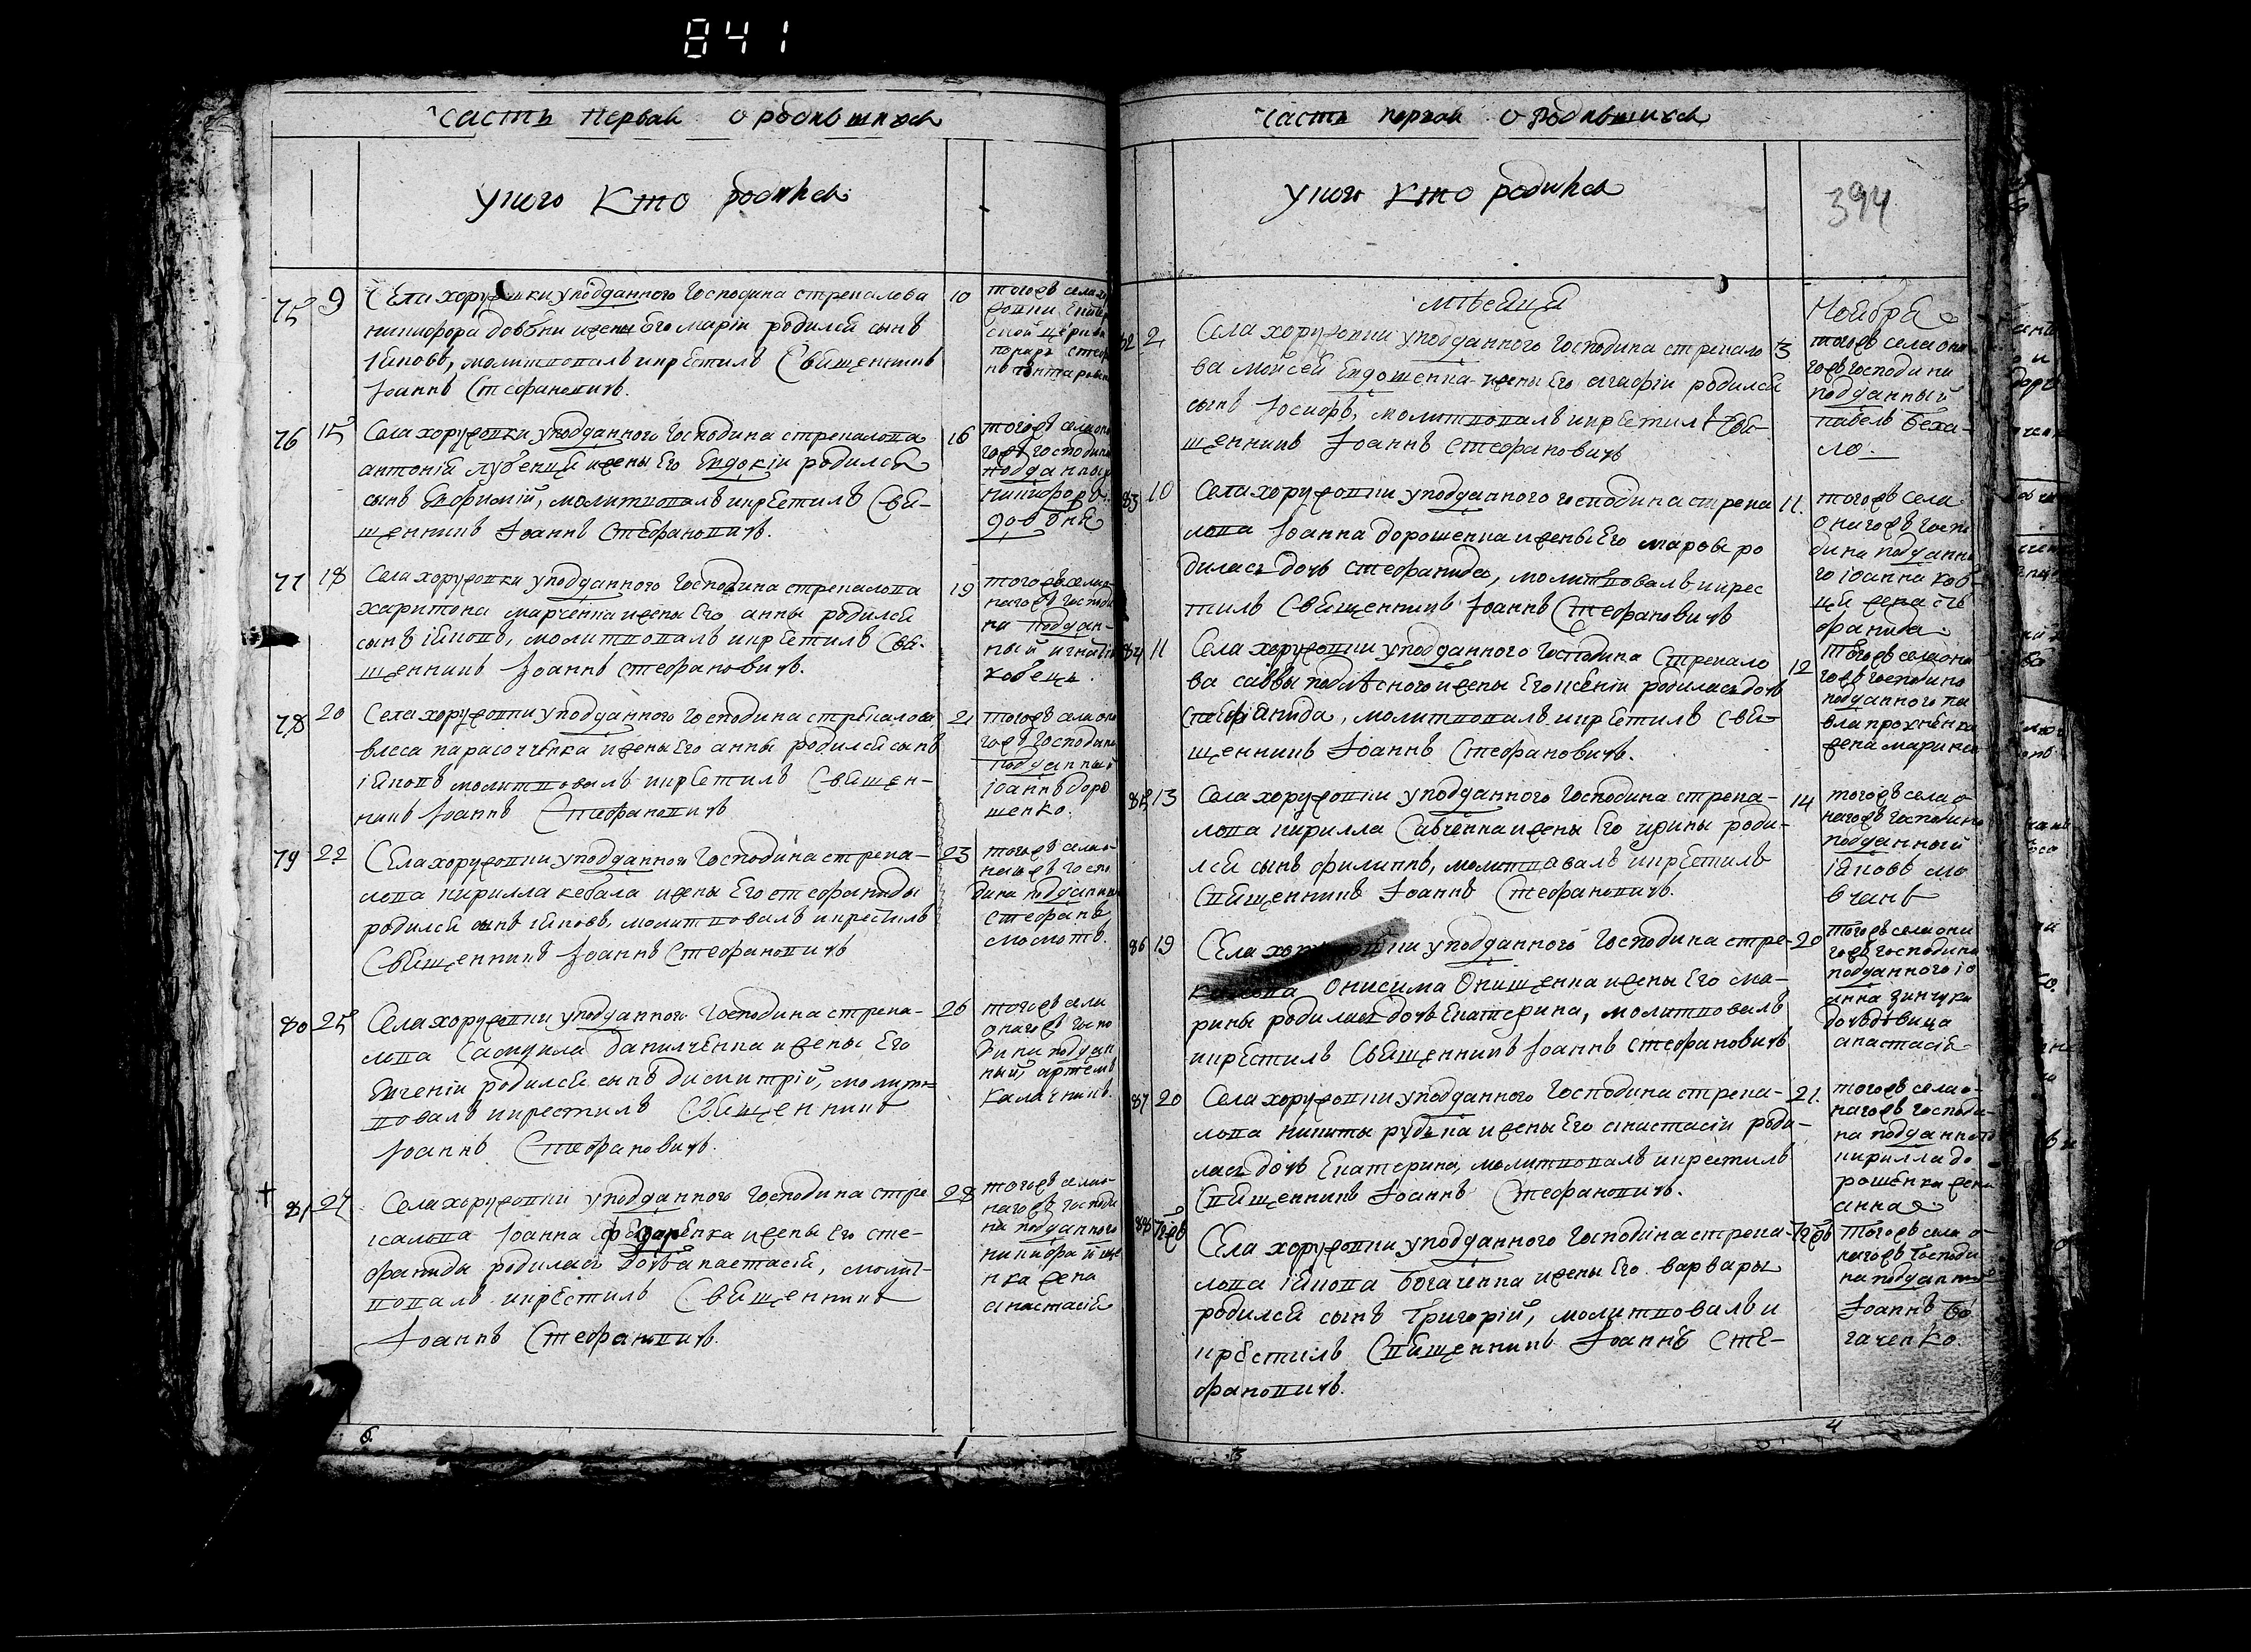 841
часть первая о родившихся
У кого кто родился
75 9 Села хоружовки уподданного Господина стрекалова 10
никифора довбни ижены Его маріи родился сынъ
Іяковъ, молитвовалъ икрестилъ Священникъ
Іоаннъ Стефановичъ.
тогожъ села хо
76 15 Села хоружовки уподданного Господина стрекалова 16
антонія лубенця ижены Его Евдокіи родился
сынъ Евфимій, молитвовалъ икрестилъ Свя-
щенникъ Іоаннъ Стефановичъ.
тогожъ села она
гожъ господина
подданный
никифоръ
довбня
77 18 Села хоружовки уподданного Господина стрекалова 19
харитона марченка ижены Его анны родился
сынъ Іяковъ, молитвовалъ икрестилъ Свя-
щенникъ Іоаннъ Стефановичъ.
тогожъ села о
нагожъ господи
на поддан-
ный игнатъ
кобецъ.
78 20 Села хоружовки уподданного Господина стрекалова 21
власа парасоченка ижены Его анны родился сынъ
Іяковъ молитвовалъ икрестилъ Священ-
никъ Іоаннъ Стефановичъ
тогожъ села она
гожъ господина
подданный
Іоаннъ доро
шенко.
79 22 Села хоружовки уподданного Господина стрека- 23
лова кирилла кебала ижены Его стефаниды
родился сынъ Іяковъ, молитвовалъ икрестилъ
Священникъ Іоаннъ Стефановичъ
тогожъ села о
нагожъ госпо
дина подданный
стефанъ
80 25 Села хоружовки уподданного Господина стрека- 26
лова Самуила данилченка ижены Его
Евгеніи родился сынъ димитрій, молит
вовалъ икрестилъ Священникъ
Іоаннъ Стефановичъ.
тогожъ села
онагожъ госпо
дина поддан
ный артемъ
калачникъ.
81 27 Села хоружовки уподданного Господина стре 28
калова Іоанна федоренка ижены Его сте-
фаниды родилась дочь анастасія, молит-
вовалъ икрестилъ Священникъ
Іоаннъ Стефановичъ.
тогожъ села о
нагожъ господи
на подданного
жена
анастасія
6
часть первая о родившихся
У кого кто родился
394
мѣсяца Ноября
82 2 Села хоружовки уподданного Господина стрекало 3
ва моисея Евдошенка ижены Его агафіи родился
сынъ Іосифъ, молитвовалъ икрестилъ Свя-
щенникъ Іоаннъ Стефановичъ
тогожъ села она
гожъ господина
подданный
павелъ беха-
ло.
83 10 Села хоружовки уподданного господина стрека 11.
лова Іоанна дорошенка ижены Его марфы ро
дилась дочь стефанида, молитвовалъ икрес
тилъ Священникъ Іоаннъ Стефановичъ
тогожъ села
онагожъ госпо
дина поддан
го Іоанна коб-
ця жена сте
фанида.
84 11 Села хоружовки уподданного Господина Стрекало 12
ва саввы подлѣсного ижены Его ксеніи родилась дочь
стефанида, молитвовалъ икрестилъ Свя-
щенникъ Іоаннъ Стефановичъ.
тогожъ села она
гожъ господина
подданного па
вла прохненка
жена марина
85 13 Села хоружовки уподданного Господина стрека- 14
лова кирилла Савченка ижены Его ирины роди-
лся сынъ филиппъ, молитвовалъ икрестилъ
Священникъ Іоаннъ Стефановичъ.
тогожъ села о
нагожъ господина
подданный
Іяковъ мо
вчанъ
86 19 Села хоружовки уподданного Господина стре- 20
калова Онисима Онищенка ижены Его ма-
рины родилась дочь Екатерина, молитвовалъ
икрестилъ Священникъ Іоаннъ Стефановичъ
тогожъ села она
гожъ господина
подданного Іо
анна зинчука
дочь дѣвица
анастасія
87 20 Села хоружовки уподданного Господина стрека- 21.
лова никиты рудька ижены Его анастасіи роди-
лась дочь Екатерина, молитвовалъ икрестилъ
Священникъ Іоаннъ Стефановичъ.
тогожъ села о-
нагожъ господи-
на подданного
кирилла до
рошенка жена
анна
88 Села хоружовки уподданного Господина стрека-
лова Іякова богаченка ижены Его варвары
родился сынъ Григорій, молитвовалъ и
крестилъ Священникъ Іоаннъ Сте-
фановичъ.
тогожъ села о-
нагожъ Господи
на подданный
Іоаннъ бо
гаченко.
4